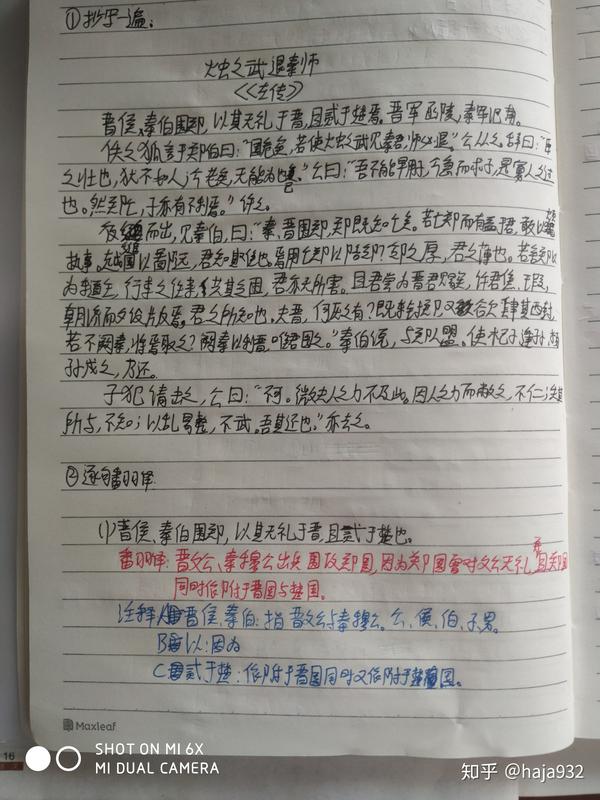 ①抄写一遍:
烛之武退秦师
《左传》
晋侯、秦伯围郑,以其无礼于晋,且贰于楚也。晋军函陵,秦军氾南。
佚之狐言于郑伯曰:"国危矣,若使烛之武见秦君,师必退。"公从之。辞曰:"臣
之壮也,犹不如人;今老矣,无能为也已。"公曰:"吾不能早用子,今急而求子,是寡人之过
也。然郑亡,子亦有不利焉。"许之。
夜缒而出,见秦伯,曰:"秦、晋围郑,郑既知亡矣。若亡郑而有益于君,敢以烦
执事。越国以鄙远,君知其难也。焉用亡郑以陪邻?邻之厚,君之薄也。若舍郑以
为东道主,行李之往来,共其乏困,君亦无所害。且君尝为晋君赐矣,许君焦、瑕,
朝济而夕设版焉,君之所知也。夫晋,何厌之有?既东封郑,又欲肆其西封,
若不阙秦,将焉取之?阙秦以利晋,唯君图之。"秦伯说,与郑人盟。使杞子、逢孙、杨
孙戍之,乃还。
子犯请击之,公曰:"不可。微夫人之力不及此。因人之力而敝之,不仁;失其
所与,不知;以乱易整,不武。吾其还也。"亦去之。
②逐句翻译:
(1)晋侯、秦伯围郑,以其无礼于晋,且贰于楚也。
翻译:晋文公、秦穆公出兵围攻郑国,因为郑国曾对文公无礼,且郑国
同时依附于晋国与楚国。
注释A晋侯、秦伯:指晋文公与秦穆公。公、侯、伯、子、男。
B以:因为
C贰于楚:依附于晋国同时又依附于楚国。
Maxleaf
16
SHOT ON MI 6X
MI DUAL CAMERA
知乎 @haja932